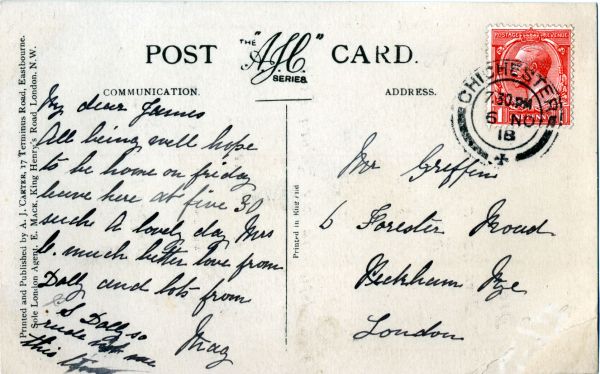 Printed and Published by A. J. CARTER, 17 Terminus Road, Eastbourne.
Sole London Agent: E. MACK, King Henry's Road, London, N.W.
POST
THE
"A.J.C."
SERIES.
CARD.
COMMUNICATION.
ADDRESS.
My dear James
All being well hope
to be home on friday
leave here at five 30
suche a lovely day Mrs
G. much better love from
Dolly and lots from
May
S Dolly so
rude
this
Printed in England
Mr Griffin
6 Forester Road
Peckham Rye
London
POSTAGE REVENUE
CHICHESTER
7.30 PM
6 NO
18